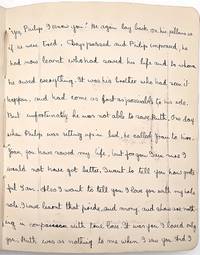 "Yes, Philip I know you." He again lay back on his pillows as
if he were tired. Days passed and Philip improved, he
had now learnt who had saved his life and to whom
he owed everything. It was his brother who had seen it
happen, and had come as fast as possible to his side.
But unfortunately he was not able to save Ruth. One day
when Philip was sitting up in bed, he called Joan to him.
"Joan you have saved my life, but for you I am sure I
would not have got better, I want to tell you how grate-
ful I am. Also I want to tell you I love you with my whole
soul. I have learnt that pride, and money and show are noth-
ing in comparison with true love. It was you I loved only
you. Ruth was as nothing to me when I saw you. And I